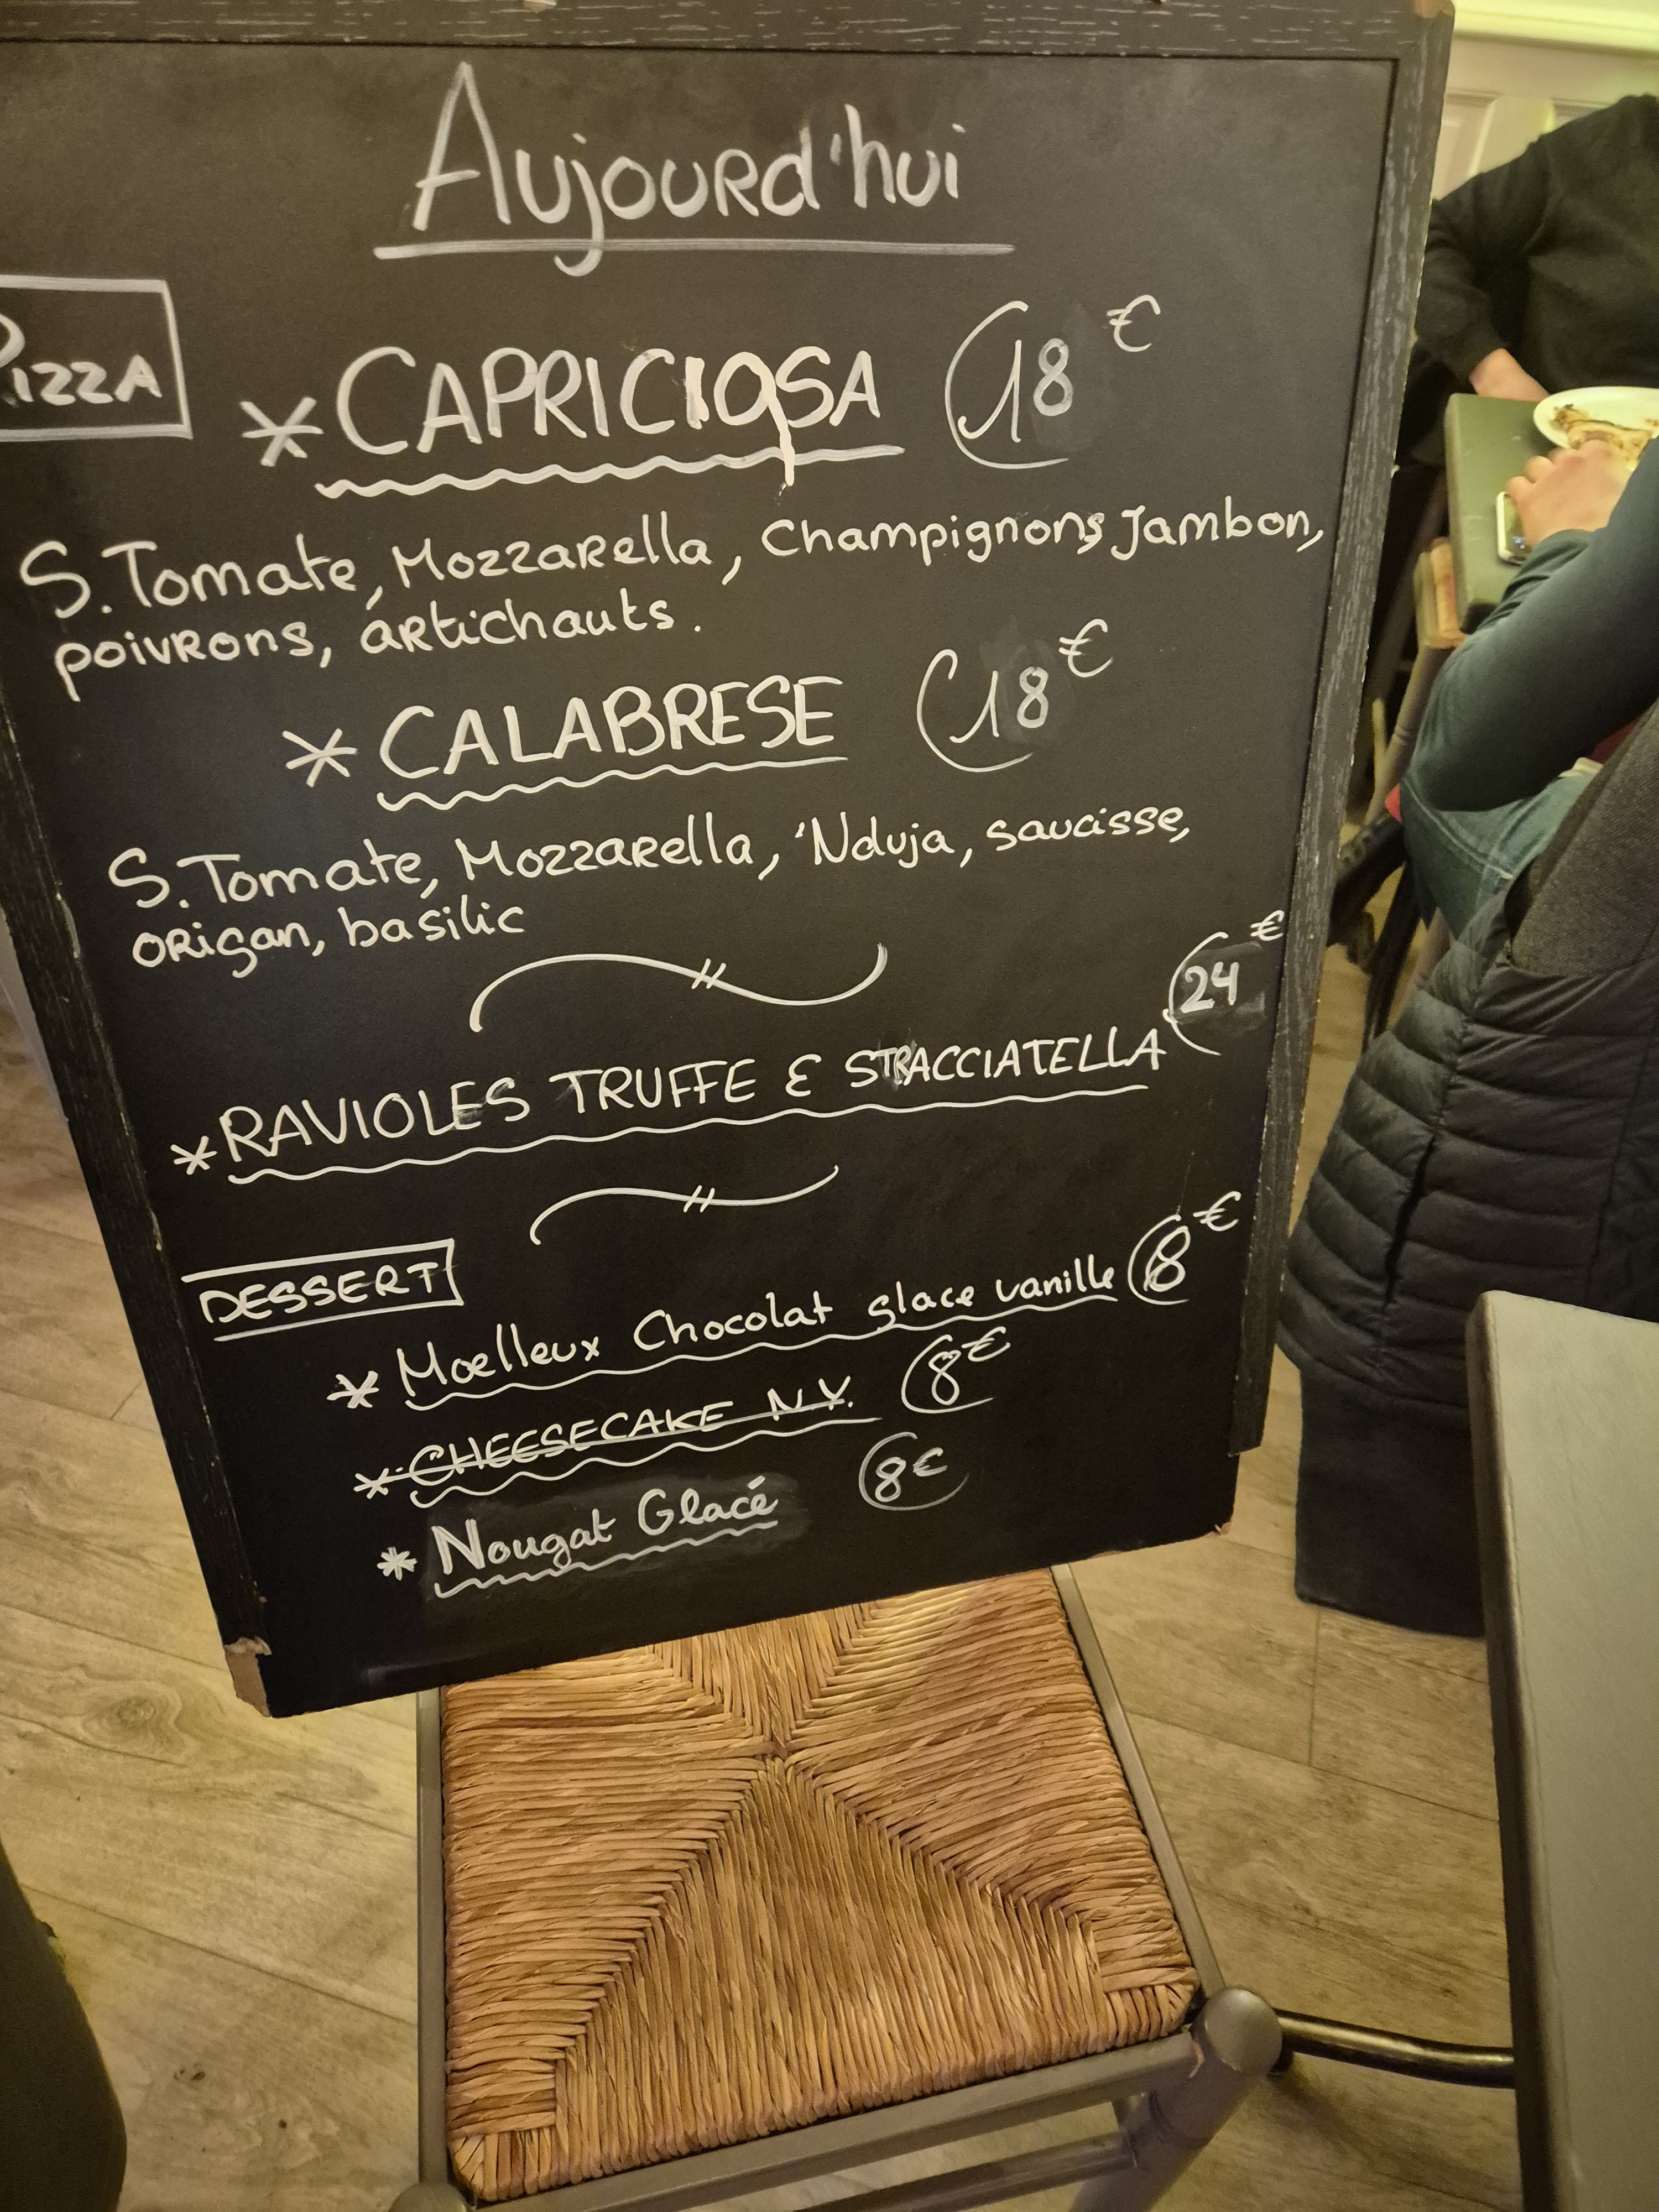 Aujourd'hui
PIZZA
* CAPRICIOSA 18 €
S. Tomate, Mozzarella, Champignons, Jambon,
poivrons, artichauts.
* CALABRESE 18 €
S. Tomate, Mozzarella, 'Nduja, saucisse,
origan, basilic
* RAVIOLES TRUFFE & STRACCIATELLA 24 €
DESSERT
* Moelleux Chocolat glace vanille 8 €
* CHEESECAKE N.Y. 8 €
* Nougat Glacé 8 €